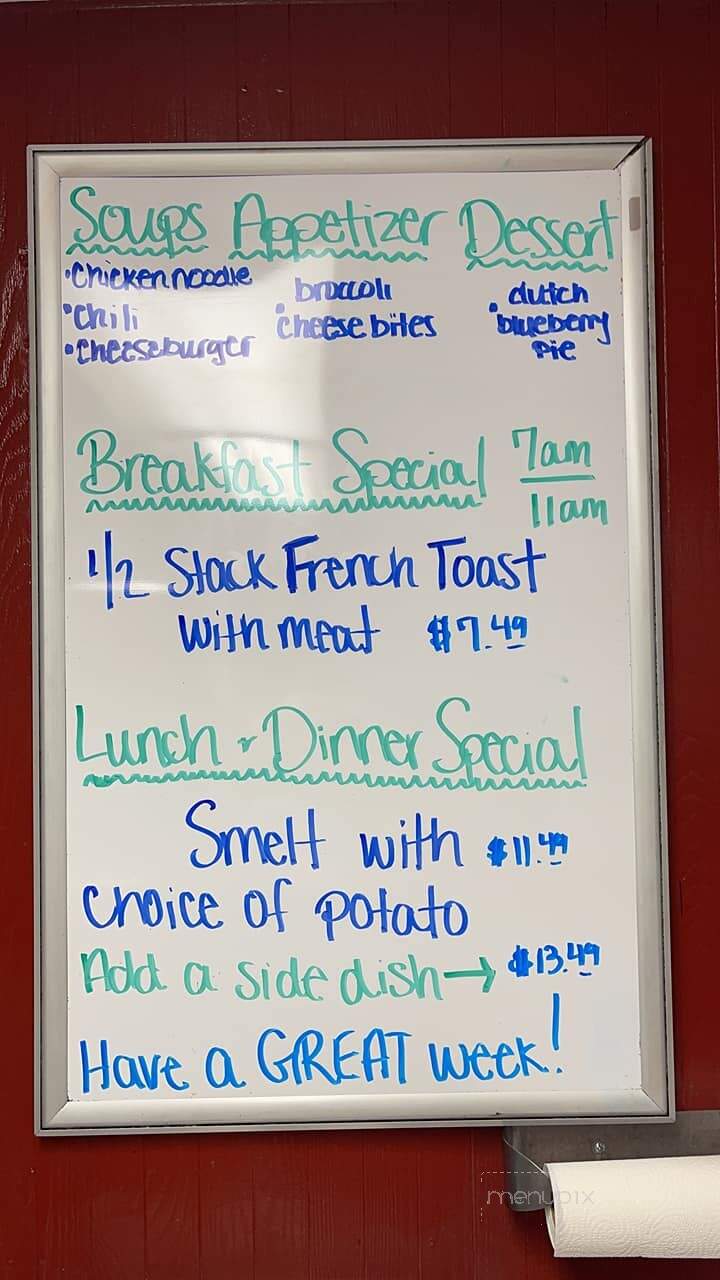 Soups Appetizer Dessert
•Chicken noodle
•Chili
•Cheeseburger
broccoli
•cheese bites
dutch
•blueberry
pie
Breakfast Special 7am
11am
1/2 Stack French Toast
with meat $7.49
Lunch & Dinner Special
Smelt with $11.49
choice of potato
Add a side dish→ $13.49
Have a GREAT week!
menupix